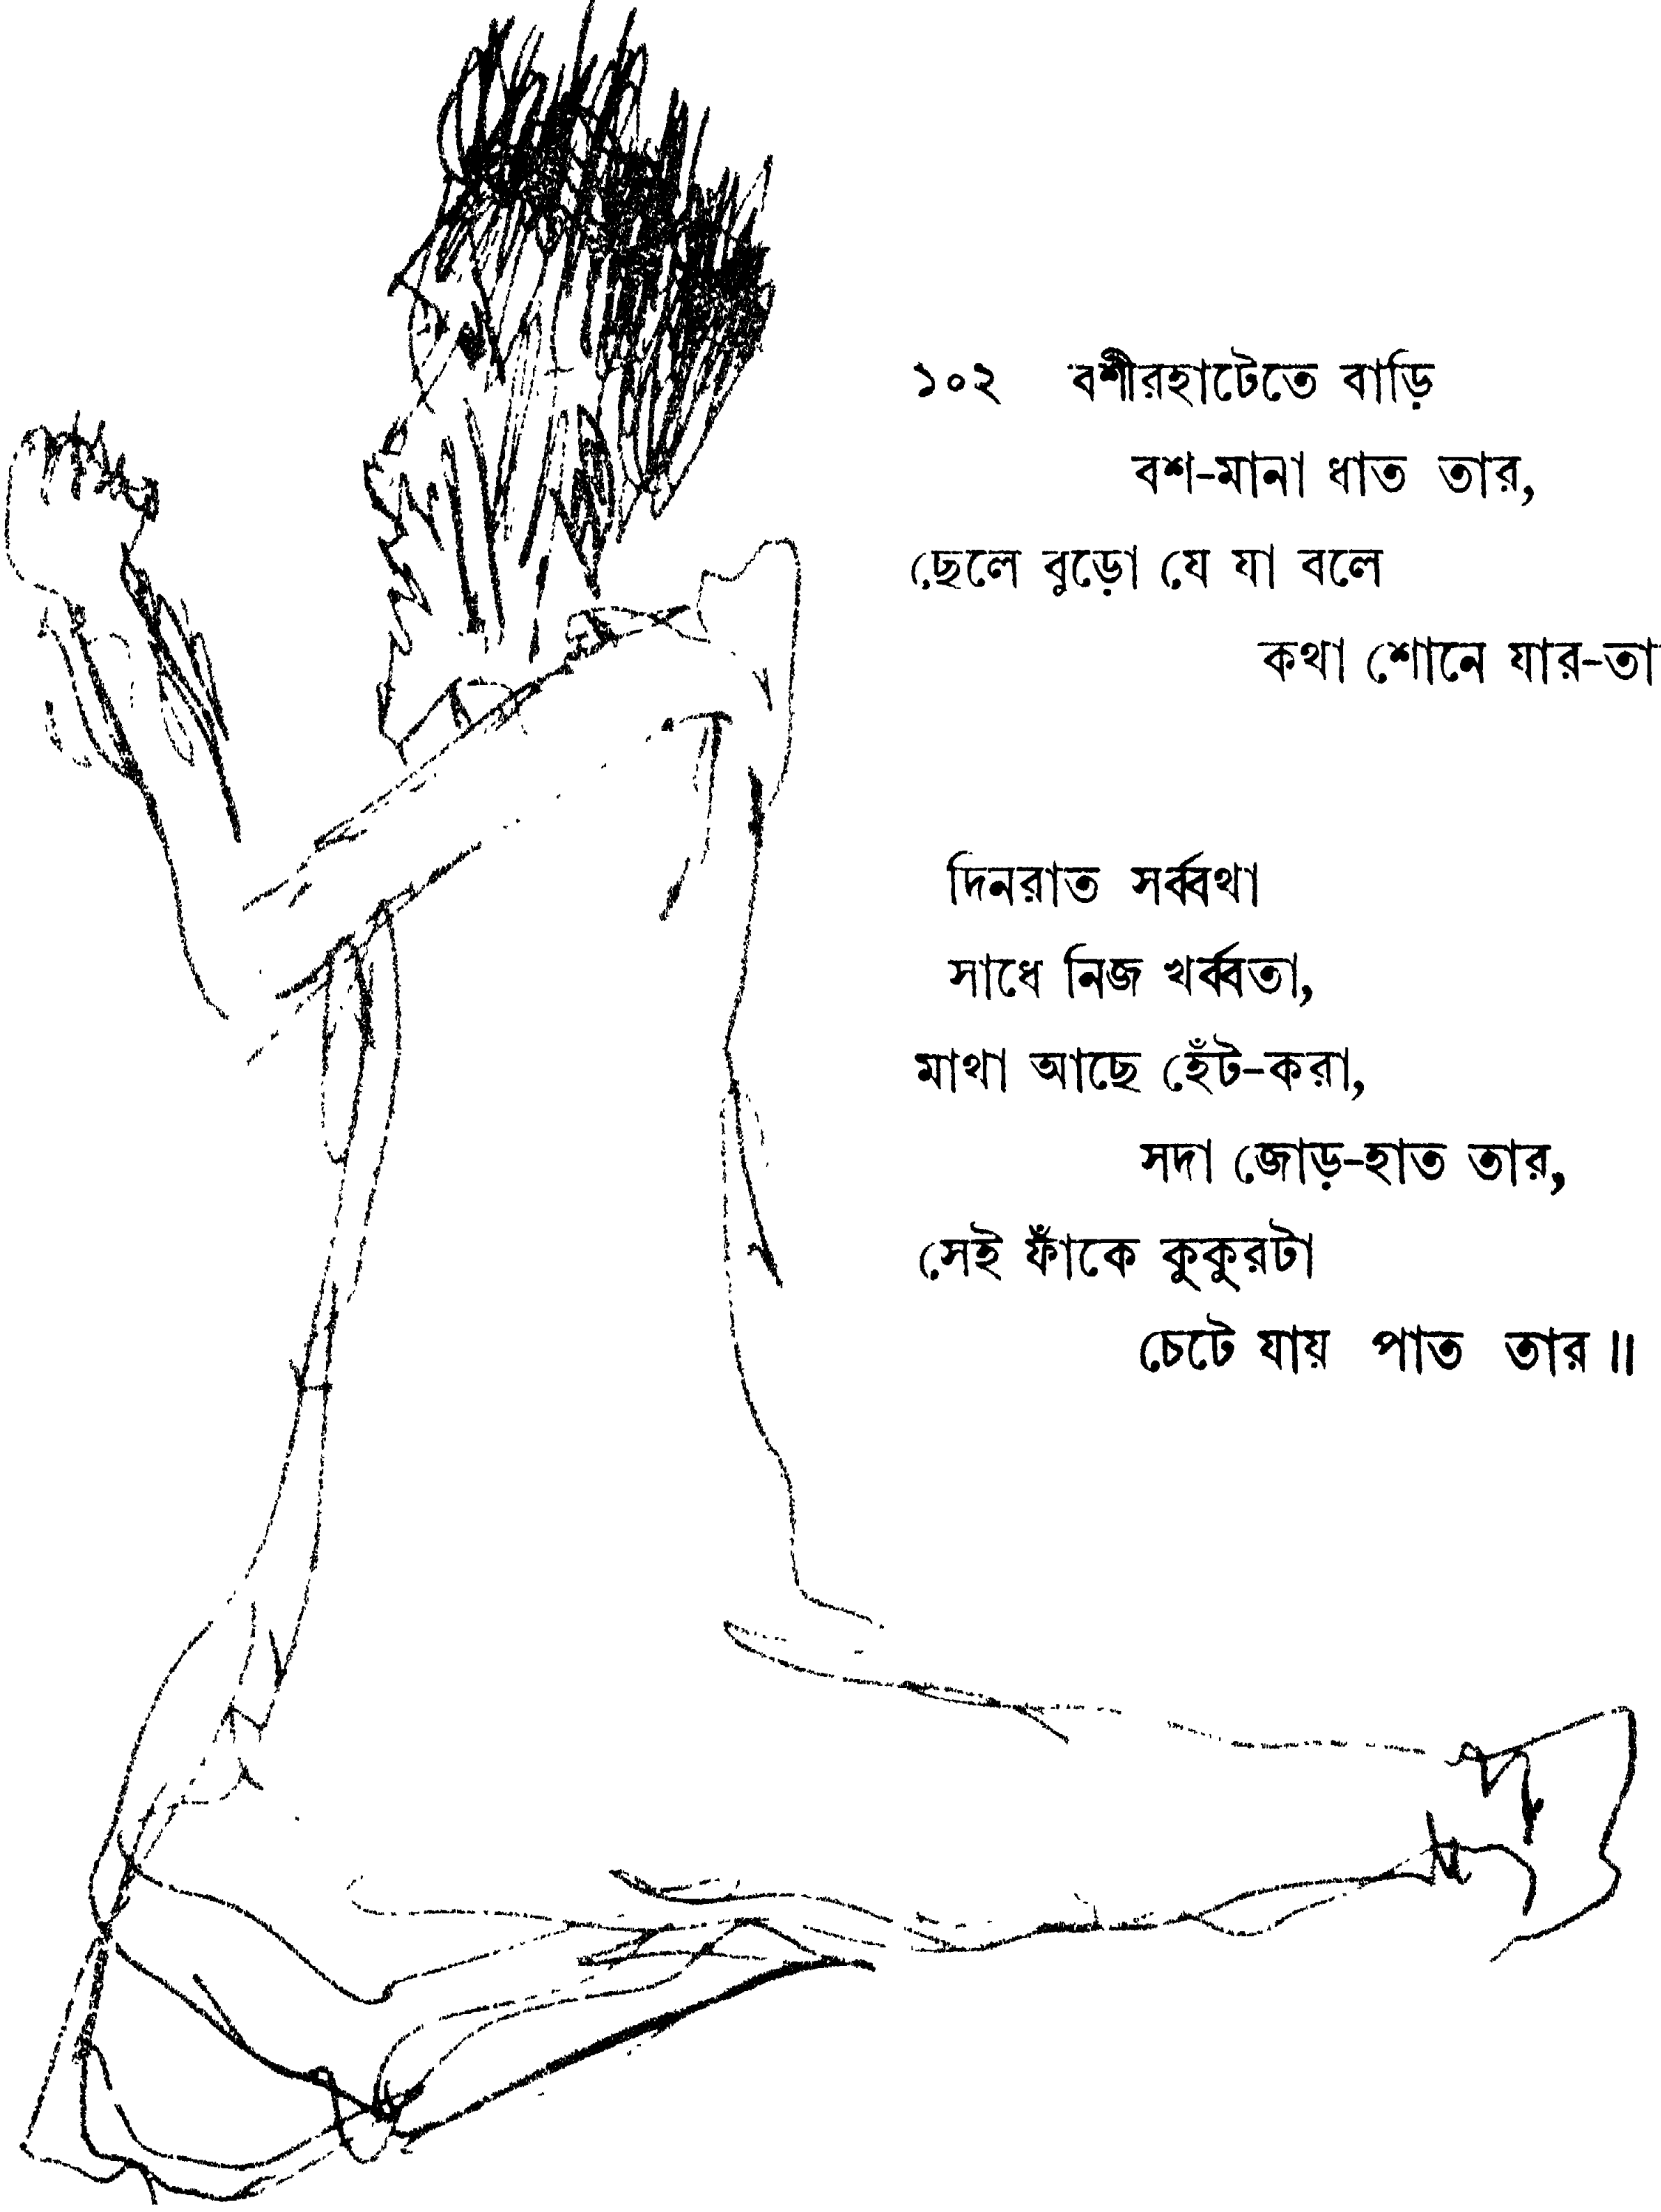 ১০২ বশীরহাটেতে বাড়ি
বশ-মানা ধাত তার,
ছেলে বুড়ো যে যা বলে
কথা শোনে যার-তা
দিনরাত সর্ব্বথা
সাধে নিজ খর্ব্বতা,
মাথা আছে হেঁট-করা,
সদা জোড়-হাত তার,
সেই ফাঁকে কুকুরটা
চেটে যায় পাত তার॥